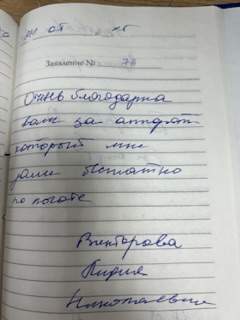 от
Заявление № 78
Очень благодарна
вам за аппарат
который мне
дали бесплатно
по
Викторова
Лидия
Николаевна